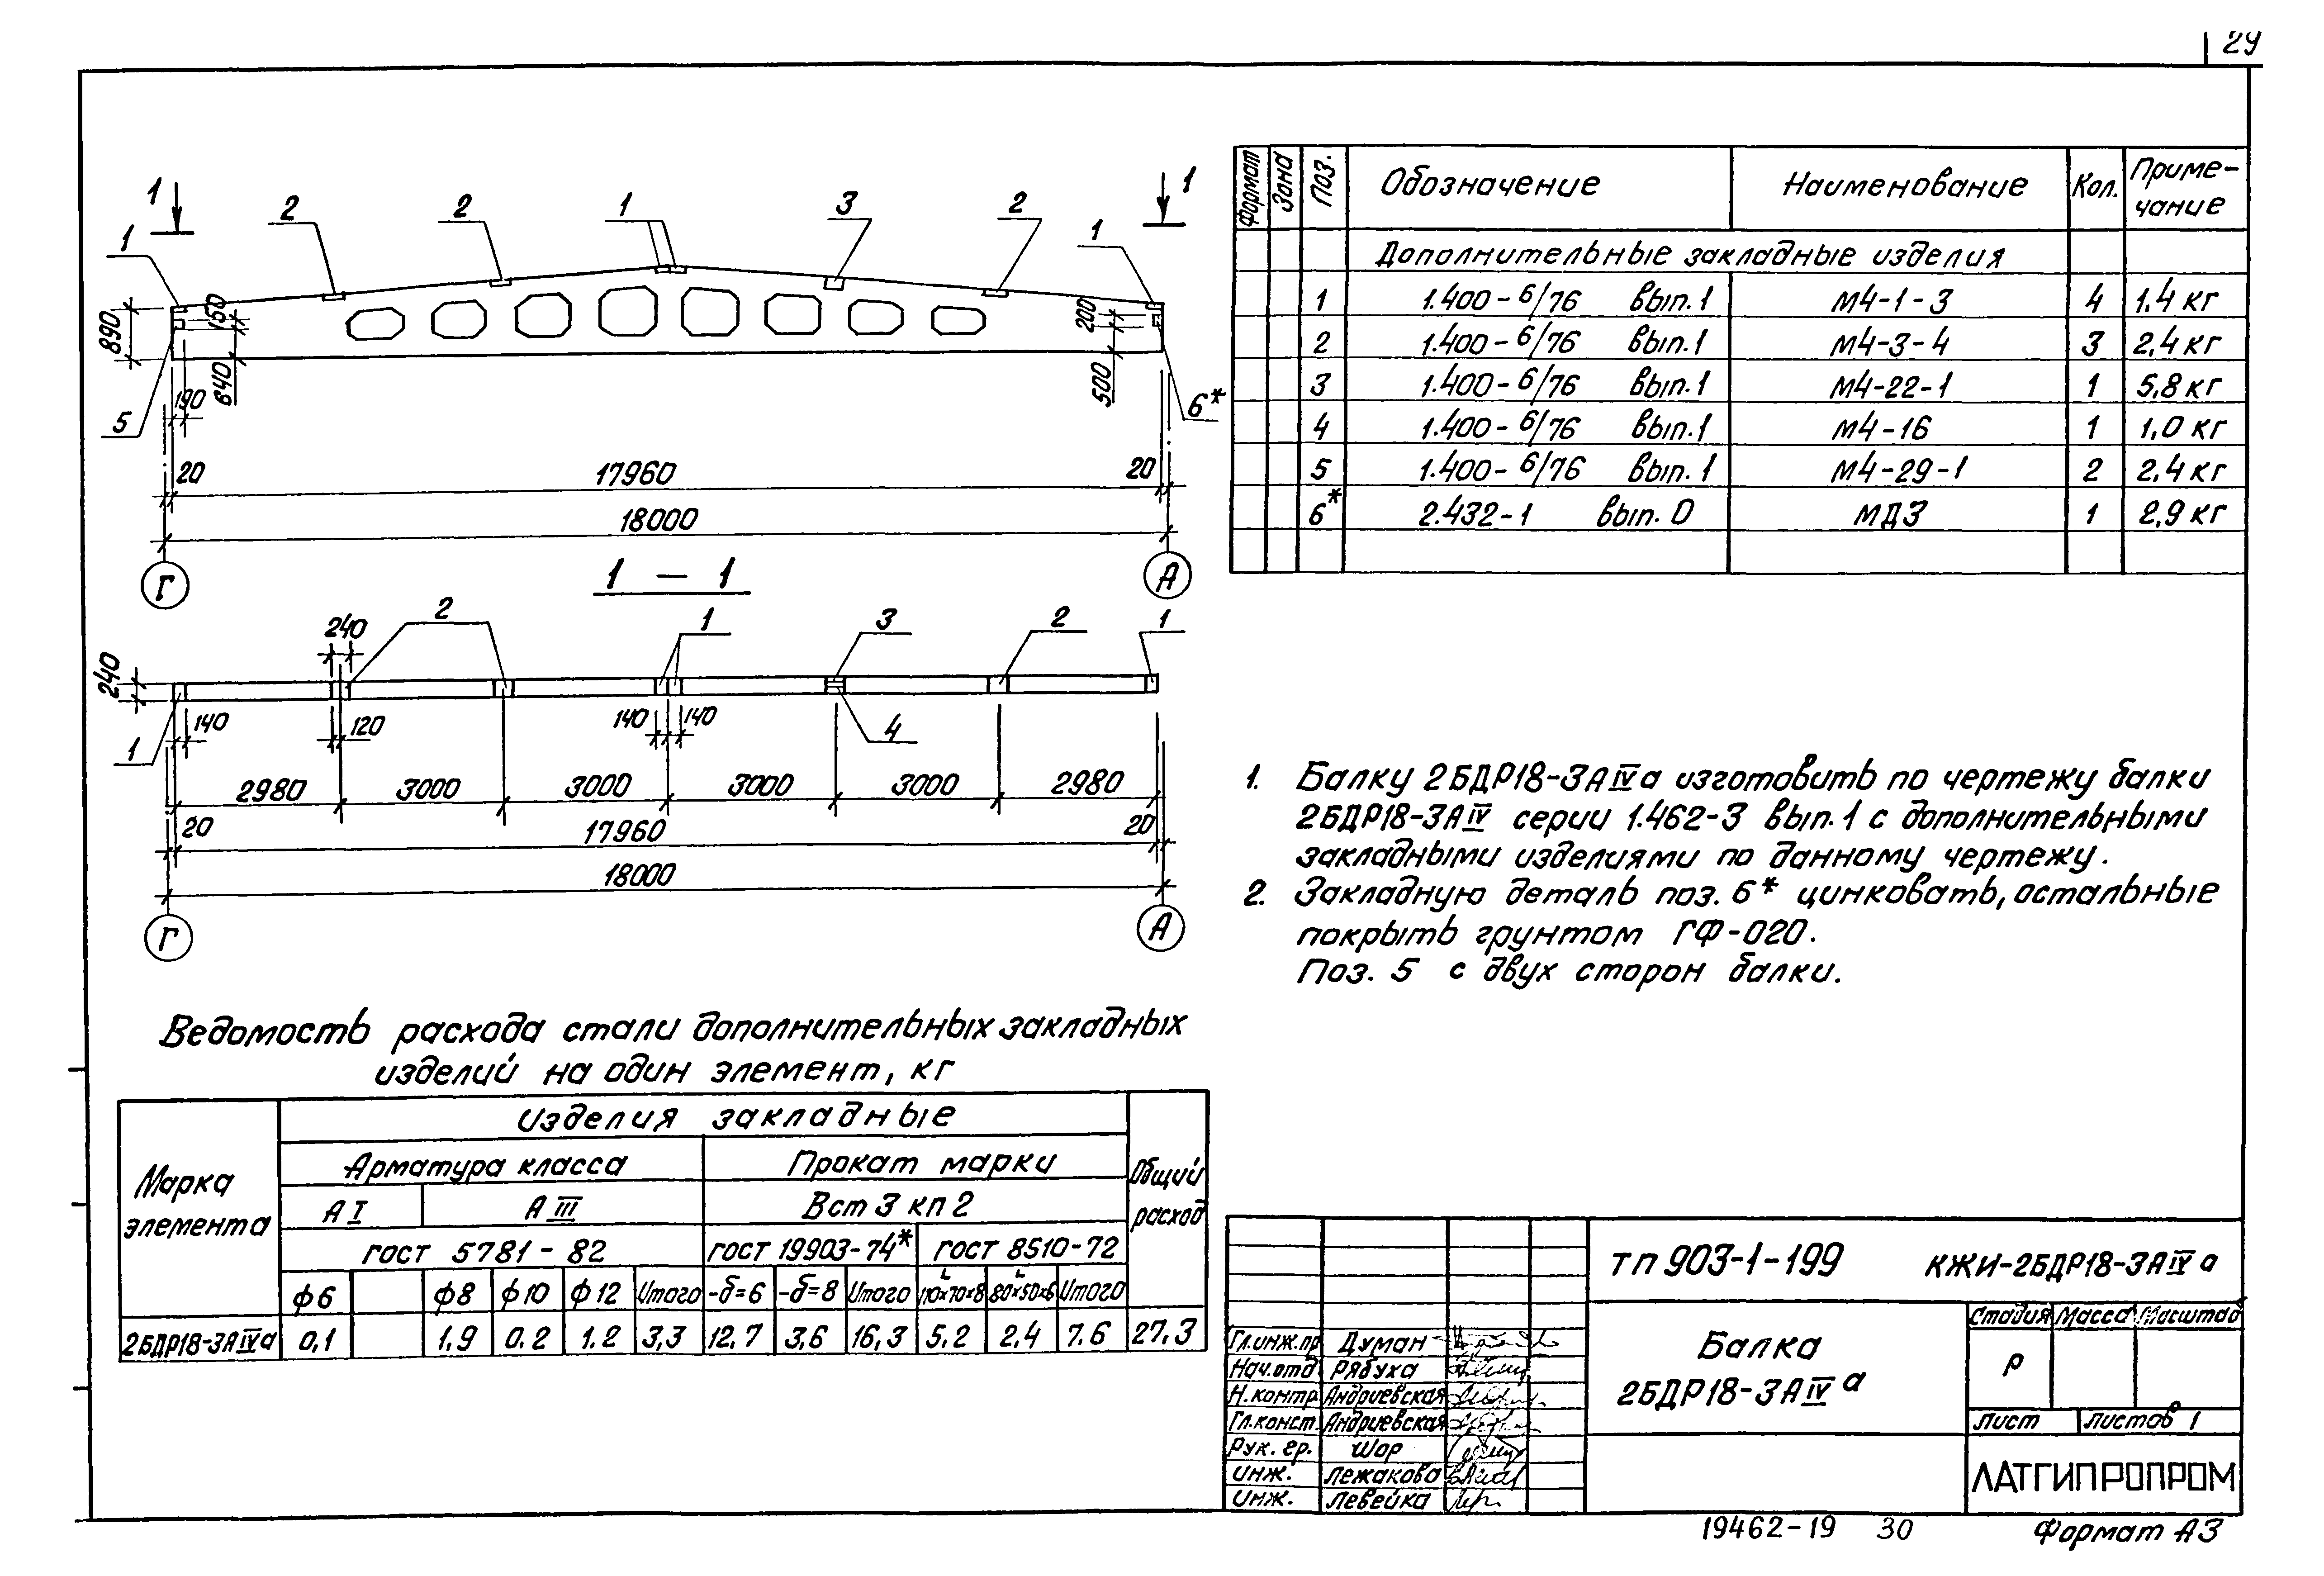 29
1 1
2 2 1 3 2
1 1
890 150 840 190 200 500
5 6*
20 17960 20
18000
Г А
1 – 1
240 2 1 3 2 1
240
140 120 140 140
1 4
2980 3000 3000 3000 3000 2980
20 17960 20
18000
Г А
Формат Зона Поз. Обозначение Наименование Кол. Приме-
чание
Дополнительные закладные изделия
1 1.400-6/76 вып.1 М4-1-3 4 1,4 кг
2 1.400-6/76 вып.1 М4-3-4 3 2,4 кг
3 1.400-6/76 вып.1 М4-22-1 1 5,8 кг
4 1.400-6/76 вып.1 М4-16 1 1,0 кг
5 1.400-6/76 вып.1 М4-29-1 2 2,4 кг
6* 2.432-1 вып. 0 МД3 1 2,9 кг
1. Балку 2БДР18-3АIVа изготовить по чертежу балки
2БДР18-3АIV серии 1.462-3 вып.1 с дополнительными
закладными изделиями по данному чертежу.
2. Закладную деталь поз. 6* цинковать, остальные
покрыть грунтом ГФ-020.
Поз. 5 с двух сторон балки.
Ведомость расхода стали дополнительных закладных
изделий на один элемент, кг
Марка
элемента
Изделия закладные
Общий
расход
Арматура класса Прокат марки
А I А III Вст 3 кп 2
гост 5781-82 гост 19903-74* гост 8510-72
ф6 ф8 ф10 ф12 Итого -δ=6 -δ=8 Итого L110×70×8 L80×50×6 Итого
2БДР18-3АIVа 0,1 1,9 0,2 1,2 3,3 12,7 3,6 16,3 5,2 2,4 7,6 27,3
тп 903-1-199 КЖИ-2БДР18-3АIVа
Балка
2БДР18-3АIVа
Стадия Масса Масштаб
Р
Лист Листов 1
ЛАТГИПРОПРОМ
Гл.инж.пр Думан
Нач.отд Рябуха
Н.контр Андриевская
Гл.конст. Андриевская
Рук. гр. Шор
инж. Лежакова
инж. Левейка
19462-19 30 Формат А3